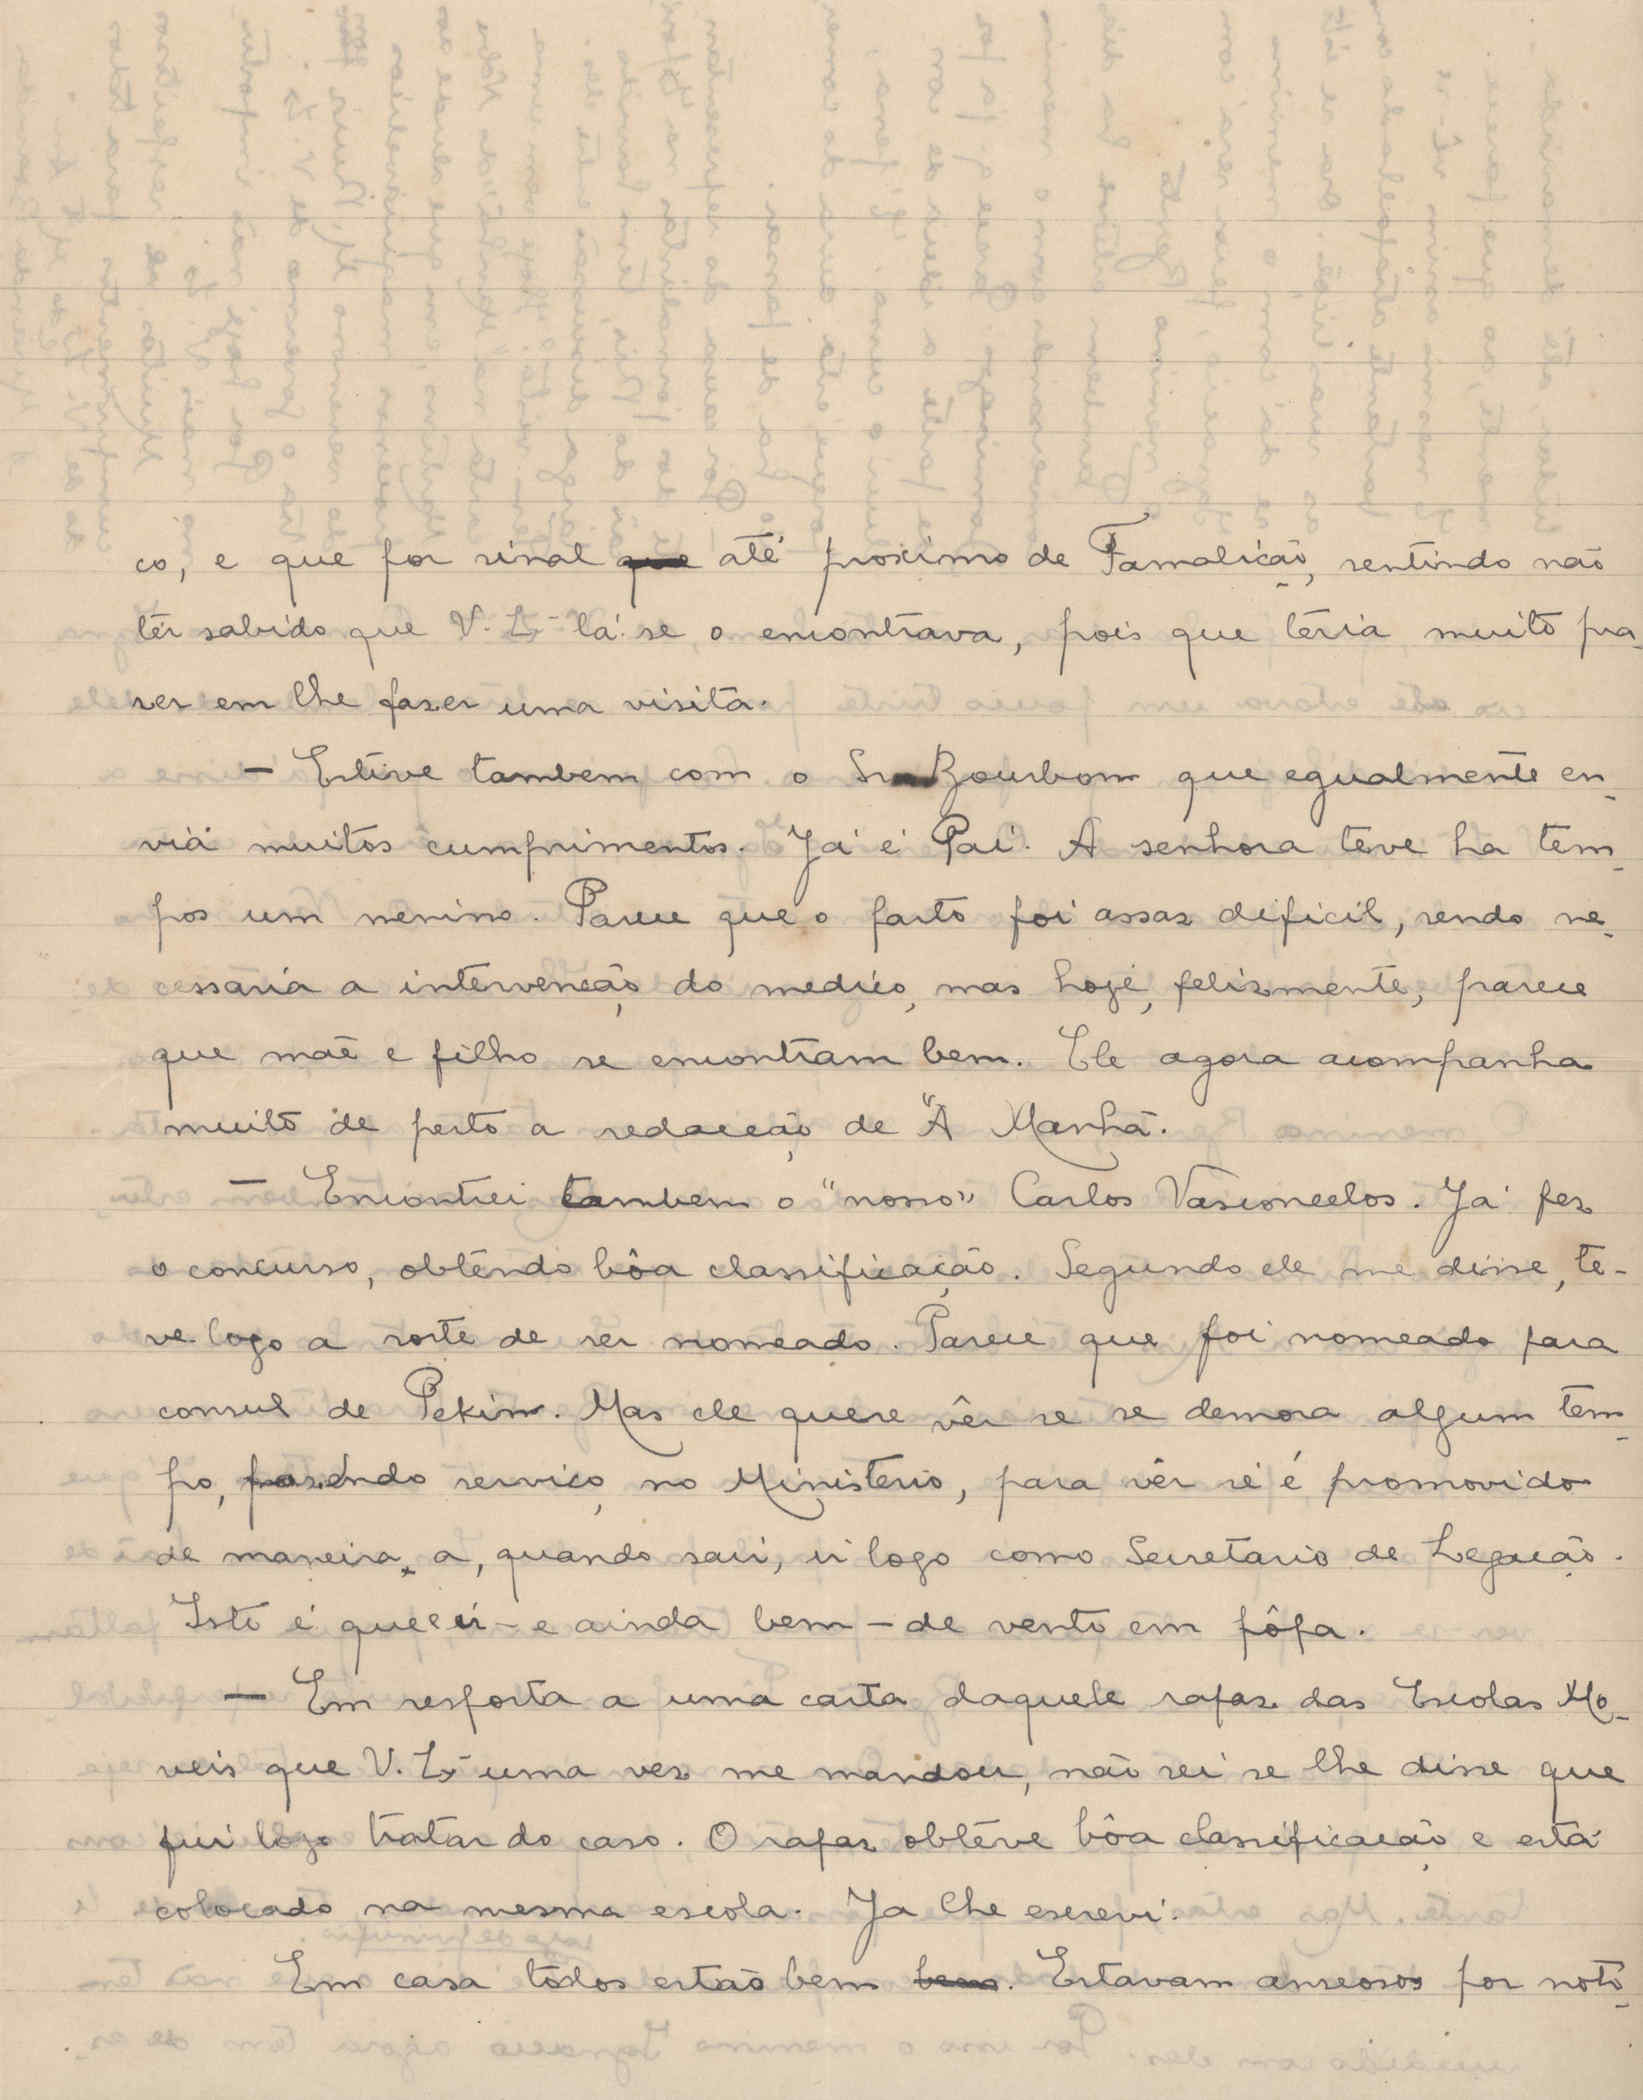 co, e que por sinal ~~que~~ até proximo de Famalicão, sentindo não
têr sabido que V. Ex.ª lá se o encontrava, pois que teria muito pra-
zer em lhe fazer uma visita.
— Estive tambem com o Sr. Bourbom que egualmente en-
via muitos cumprimentos. Já é Pai. A senhora teve ha tem-
pos um menino. Parece que o parto foi assaz dificil, sendo ne-
cessaria a intervenção do medico, mas hoje, felizmente, parece
que mãe e filho se encontram bem. Ele agora acompanha
muito de perto a redacção de "A Manhã.
— Encontrei tambem o "nosso" Carlos Vasconcelos. Já fez
o concurso, obtendo bôa classificação. Segundo ele me disse, te-
ve logo a sorte de ser nomeado. Parece que foi nomeado para
consul de Pekim. Mas ele quere vêr se se demora algum tem-
po, fazendo serviço no Ministerio, para vêr se é promovido
de maneira a, quando sair, ir logo como Secretario de Legação.
Isto é que é ir - e ainda bem - de vento em pôpa.
— Em resposta a uma carta daquele rapaz das Escolas Mo-
veis que V. Ex.ª uma vez me mandou, não sei se lhe disse que
fui logo tratar do caso. O rapaz obtêve bôa classificação e está
colocado na mesma escola. Ja lhe escrevi.
Em casa tôdos estão bem ~~bem~~. Estavam anseosos por noti-